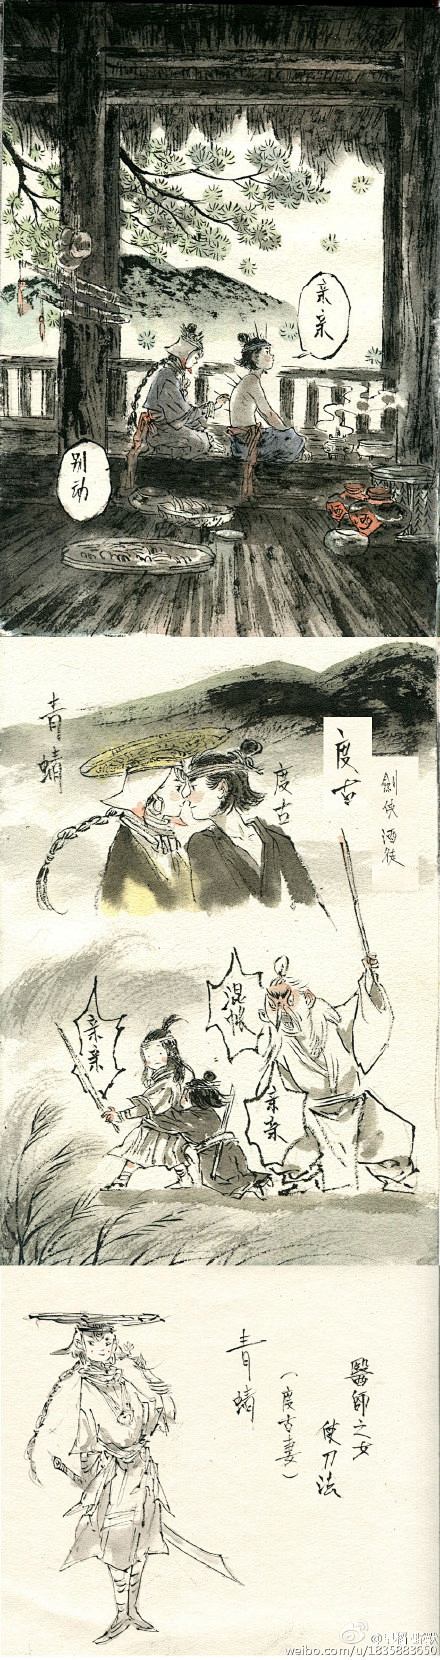 亲亲
别动
酒
青蜻
度古
度古
劍俠酒徒
亲亲
混帐
亲亲
青蜻
（度古妻）
醫師之女
使刀法
weibo.com/u/1835883650